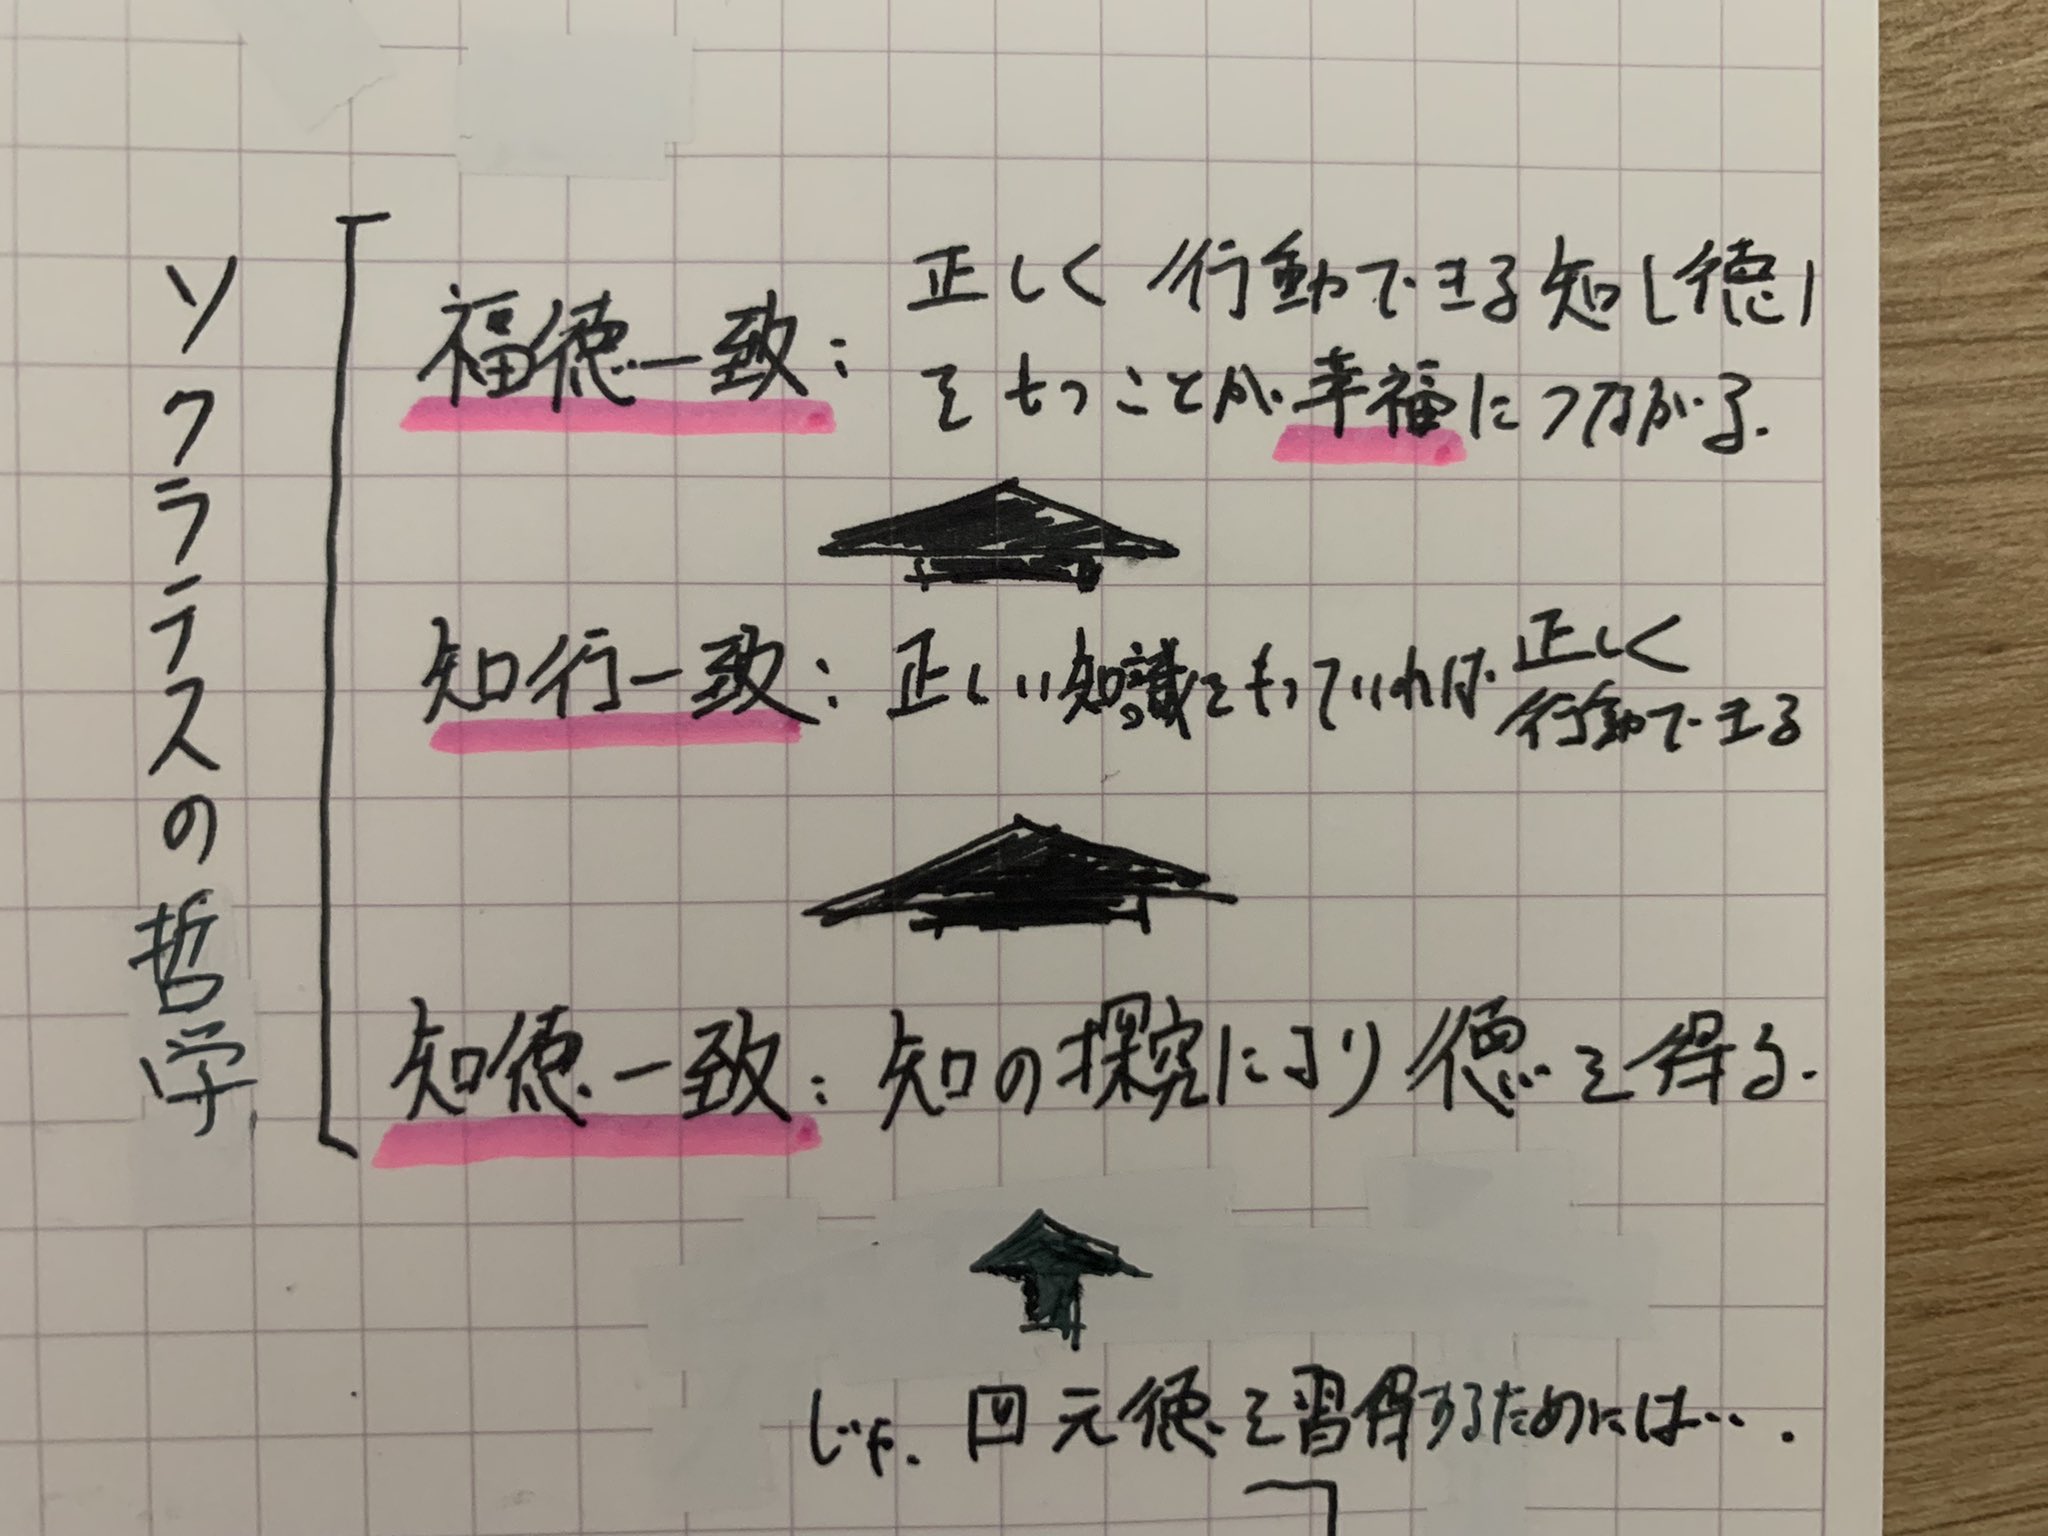 ソクラテスの哲学
福徳一致：正しく行動できる知(徳)
をもつことが幸福につながる.
知行一致：正しい知識をもっていれば正しく
行動できる
知徳一致：知の探究により徳を得る.
じゃ.四元徳を習得するためには….